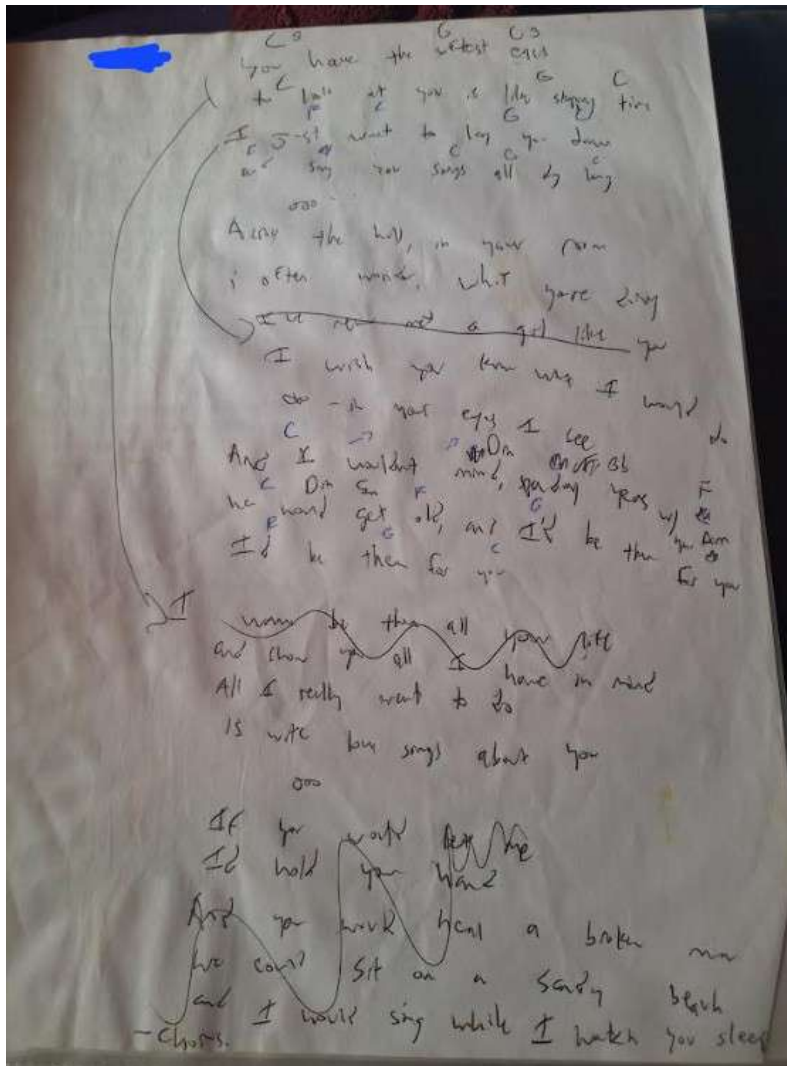 You have the softest eyes
to look at you is like stopping time
I just want to lay you down
and sing you songs all dy long
ooo
Across the hall, in your room
i often wonder, what youre doing
I've never met a girl like you
I wish you knew what I would do
ooo - in your eyes I see
C Dm Bb
And I wouldnt mind, spending years w/ you
C Dm F F Am
we would get old, and I'd be there for you
F G C
I'd be there for you
I wanna be there all your life
and show you all I have in mind
All I really want to do
is write love songs about you
ooo
If you would let me
I'd hold your hand
And you would heal a broken man
we could sit on a sandy beach
and I would sing while I watch you sleep
- Chorus.